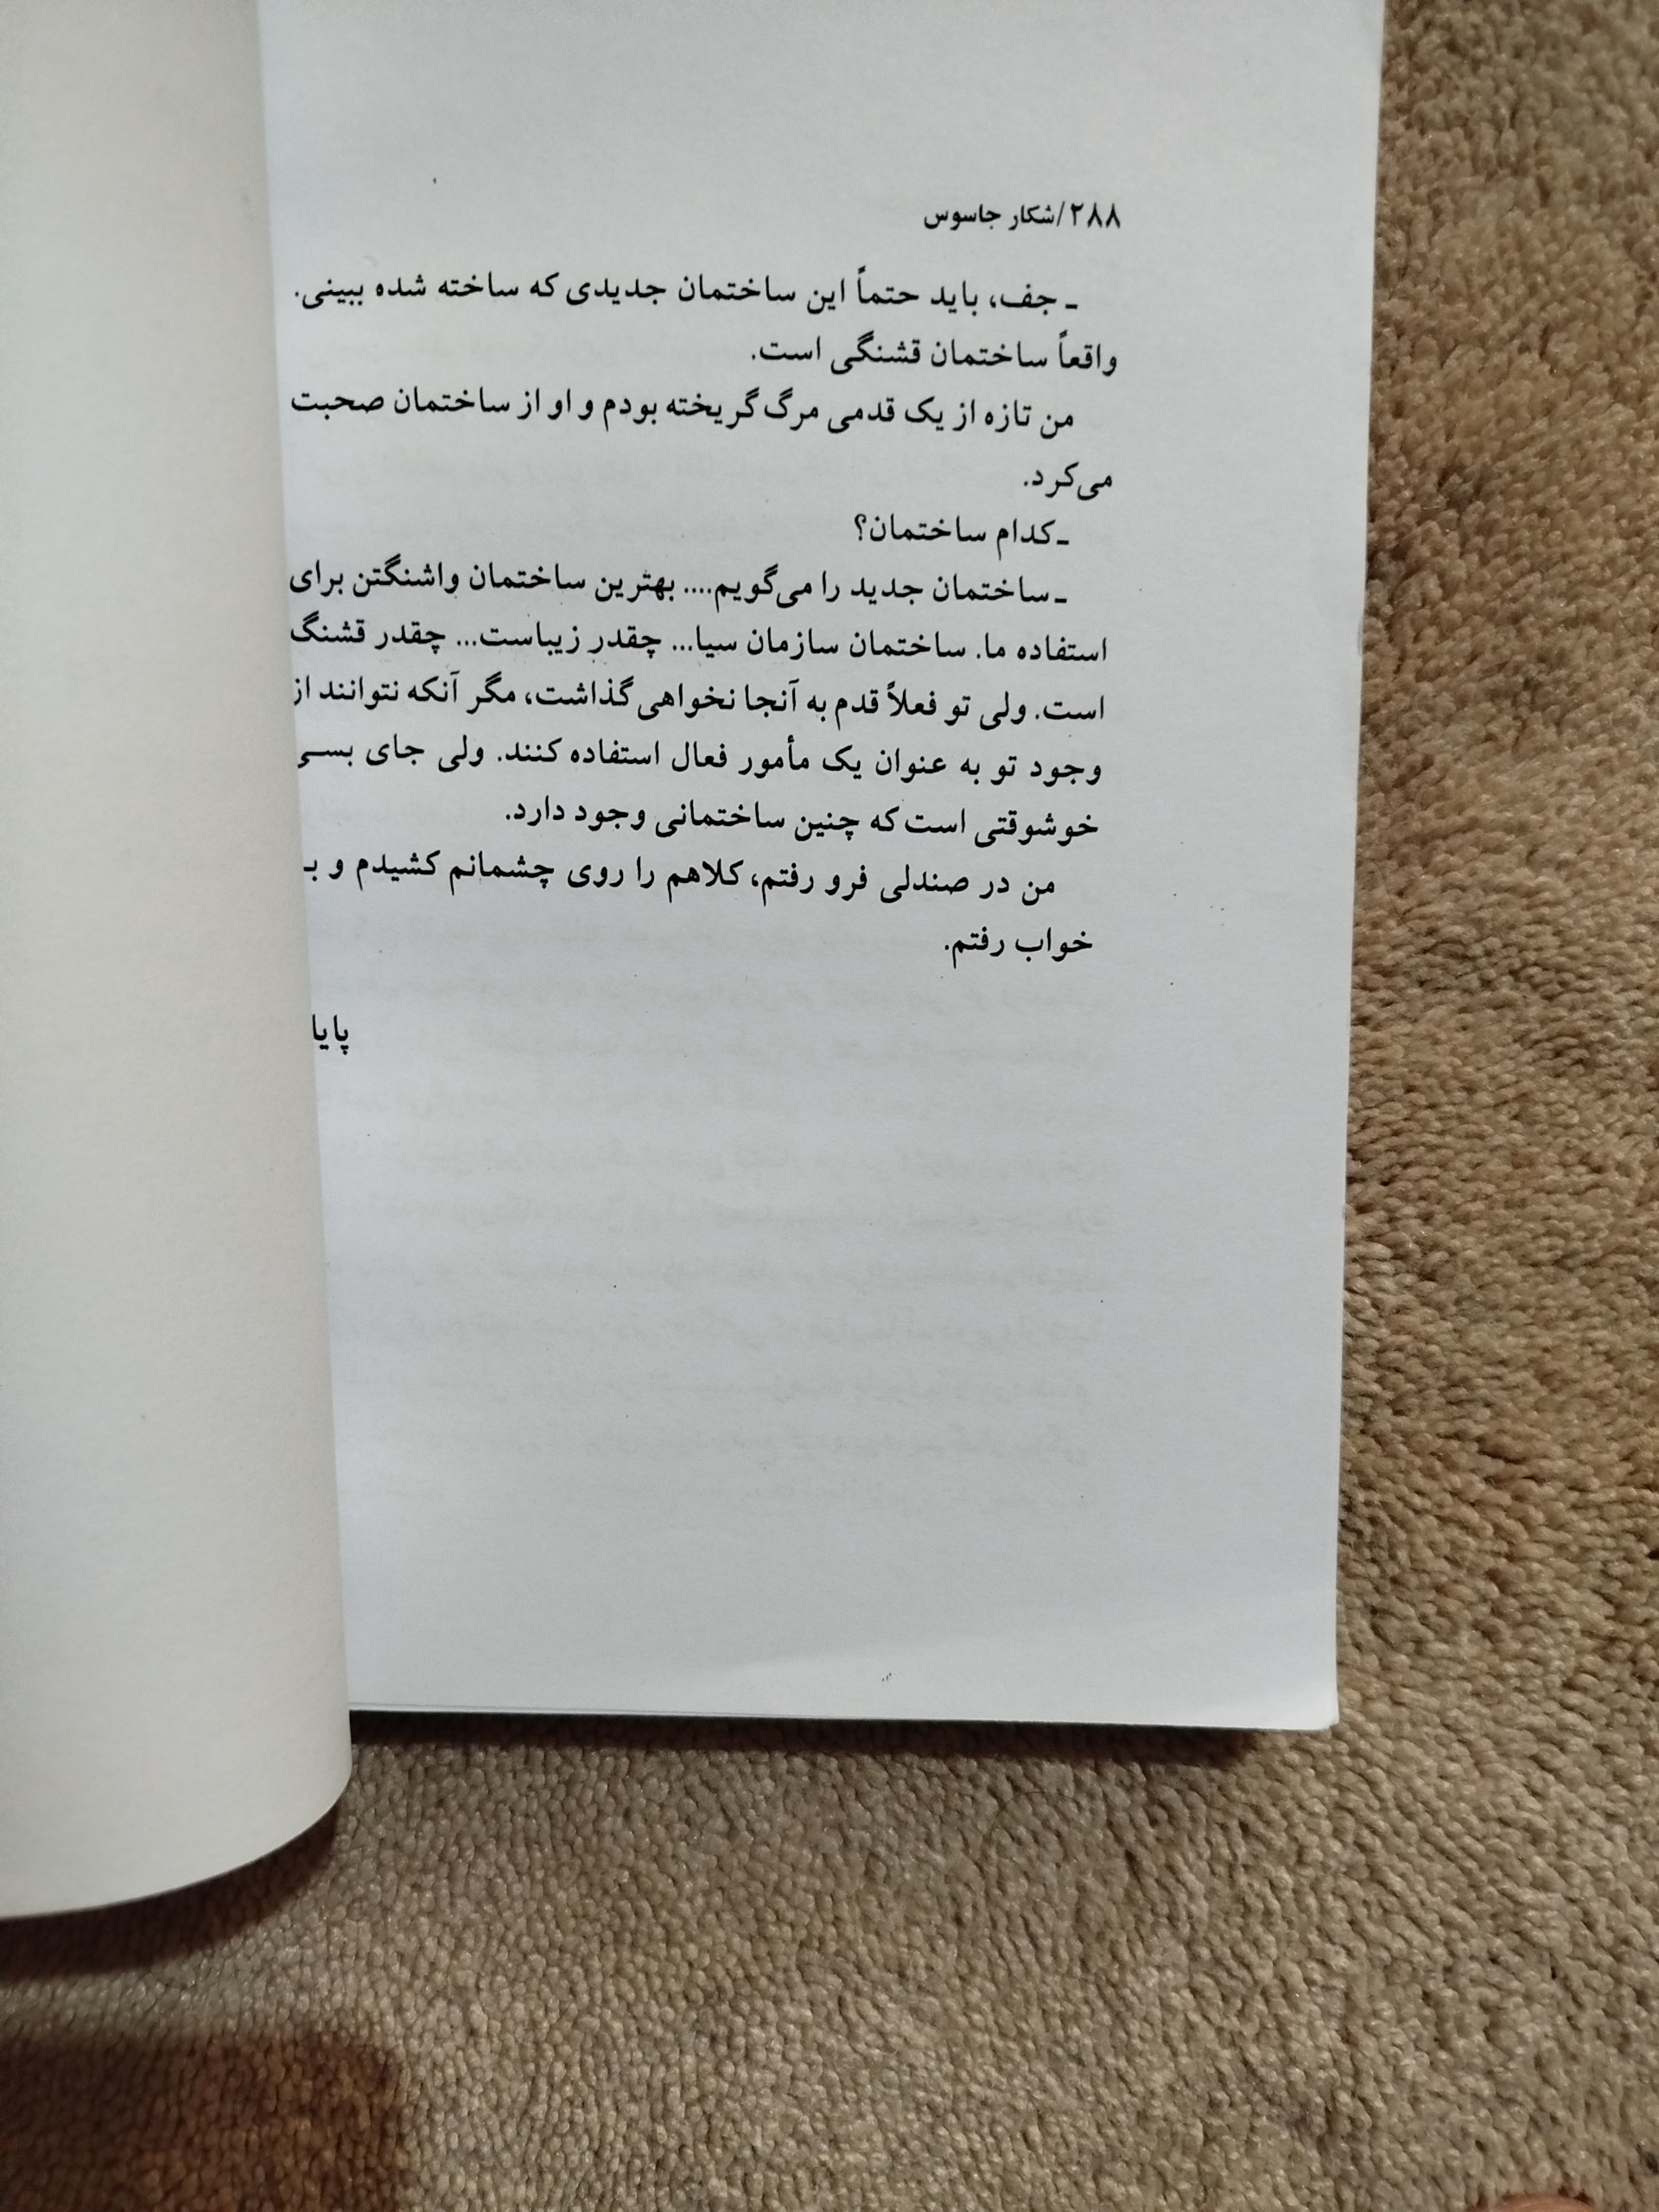 ۲۸۸/شکار جاسوس
ـ جف، باید حتماً این ساختمان جدیدی که ساخته شده ببینی.
واقعاً ساختمان قشنگی است.
من تازه از یک قدمی مرگ گریخته بودم و او از ساختمان صحبت
می‌کرد.
ـ کدام ساختمان؟
ـ ساختمان جدید را می‌گویم.... بهترین ساختمان واشنگتن برای
استفاده ما. ساختمان سازمان سیا... چقدر زیباست... چقدر قشنگ
است. ولی تو فعلاً قدم به آنجا نخواهی گذاشت، مگر آنکه نتوانند از
وجود تو به عنوان یک مأمور فعال استفاده کنند. ولی جای بسی
خوشوقتی است که چنین ساختمانی وجود دارد.
من در صندلی فرو رفتم، کلاهم را روی چشمانم کشیدم و بـ
خواب رفتم.
پایا